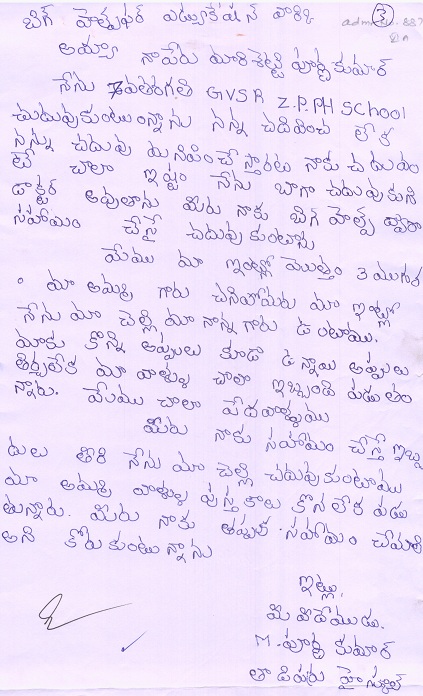 బిగ్ హెల్ప్ ఫర్ ఎడ్యుకేషన్ వారికి
3
అయ్యా నాపేరు మారిశెట్టి పూర్ణకుమార్
నేను 7వతరగతి GVSR Z.P.P.H SCHOOL
చుదువుకుంటుంన్నాను నన్ను చదివించ లేక
నన్ను చదువు మనిపించేస్తారటు నాకు చదువం
టే చాలా ఇష్టం నేను బాగా చదువుకుని
డాక్టర్ అవుతాను మీరు నాకు బిగ్ హెల్ప్ ద్వారా
సహాయం చేస్తే చదువుకుంటాను
మేము మా ఇంట్లో మొత్తం 3 ముగురం
మా అమ్మ గారు చనిపోయారు మా ఇంట్లో
నేను మా చెల్లి మా నాన్న గారు ఉంటాము.
మాకు కొన్ని అప్పులు కూడా ఉన్నాయి అప్పులు
తీర్చలేక మా వాళ్ళు చాలా ఇబ్బంది పడుతు
న్నారు. మేము చాలా పేదవాళ్ళము
మీరు నాకు సహాయం చేస్తే ఇబ్బ
దులు తీరి నేను మా చెల్లి చదువుకుంటాము
మా అమ్మ వాళ్ళు పుస్తకాలు కొనలేక పడు
తున్నారు. మీరు నాకు తప్పుక సహాయం చేయాలి
అని కోరుకుంటున్నాను
ఇట్లు,
మీ విదేముడు.
M. పూర్ణ కుమార్
తాడిపరు హైస్కూల్